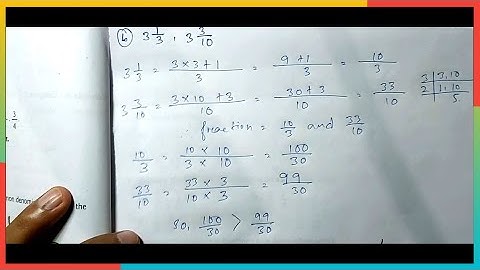 (b) 3 1/3 , 3 3/10
3 1/3 = (3 × 3 + 1)/3 = (9 + 1)/3 = 10/3
3 3/10 = (3 × 10 + 3)/10 = (30 + 3)/10 = 33/10
3 | 3, 10
2 | 1, 10
5
∴ freaction = 10/3 and 33/10
10/3 = (10 × 10)/(3 × 10) = 100/30
33/10 = (33 × 3)/(10 × 3) = 99/30
So, 100/30 > 99/30
3/4
the